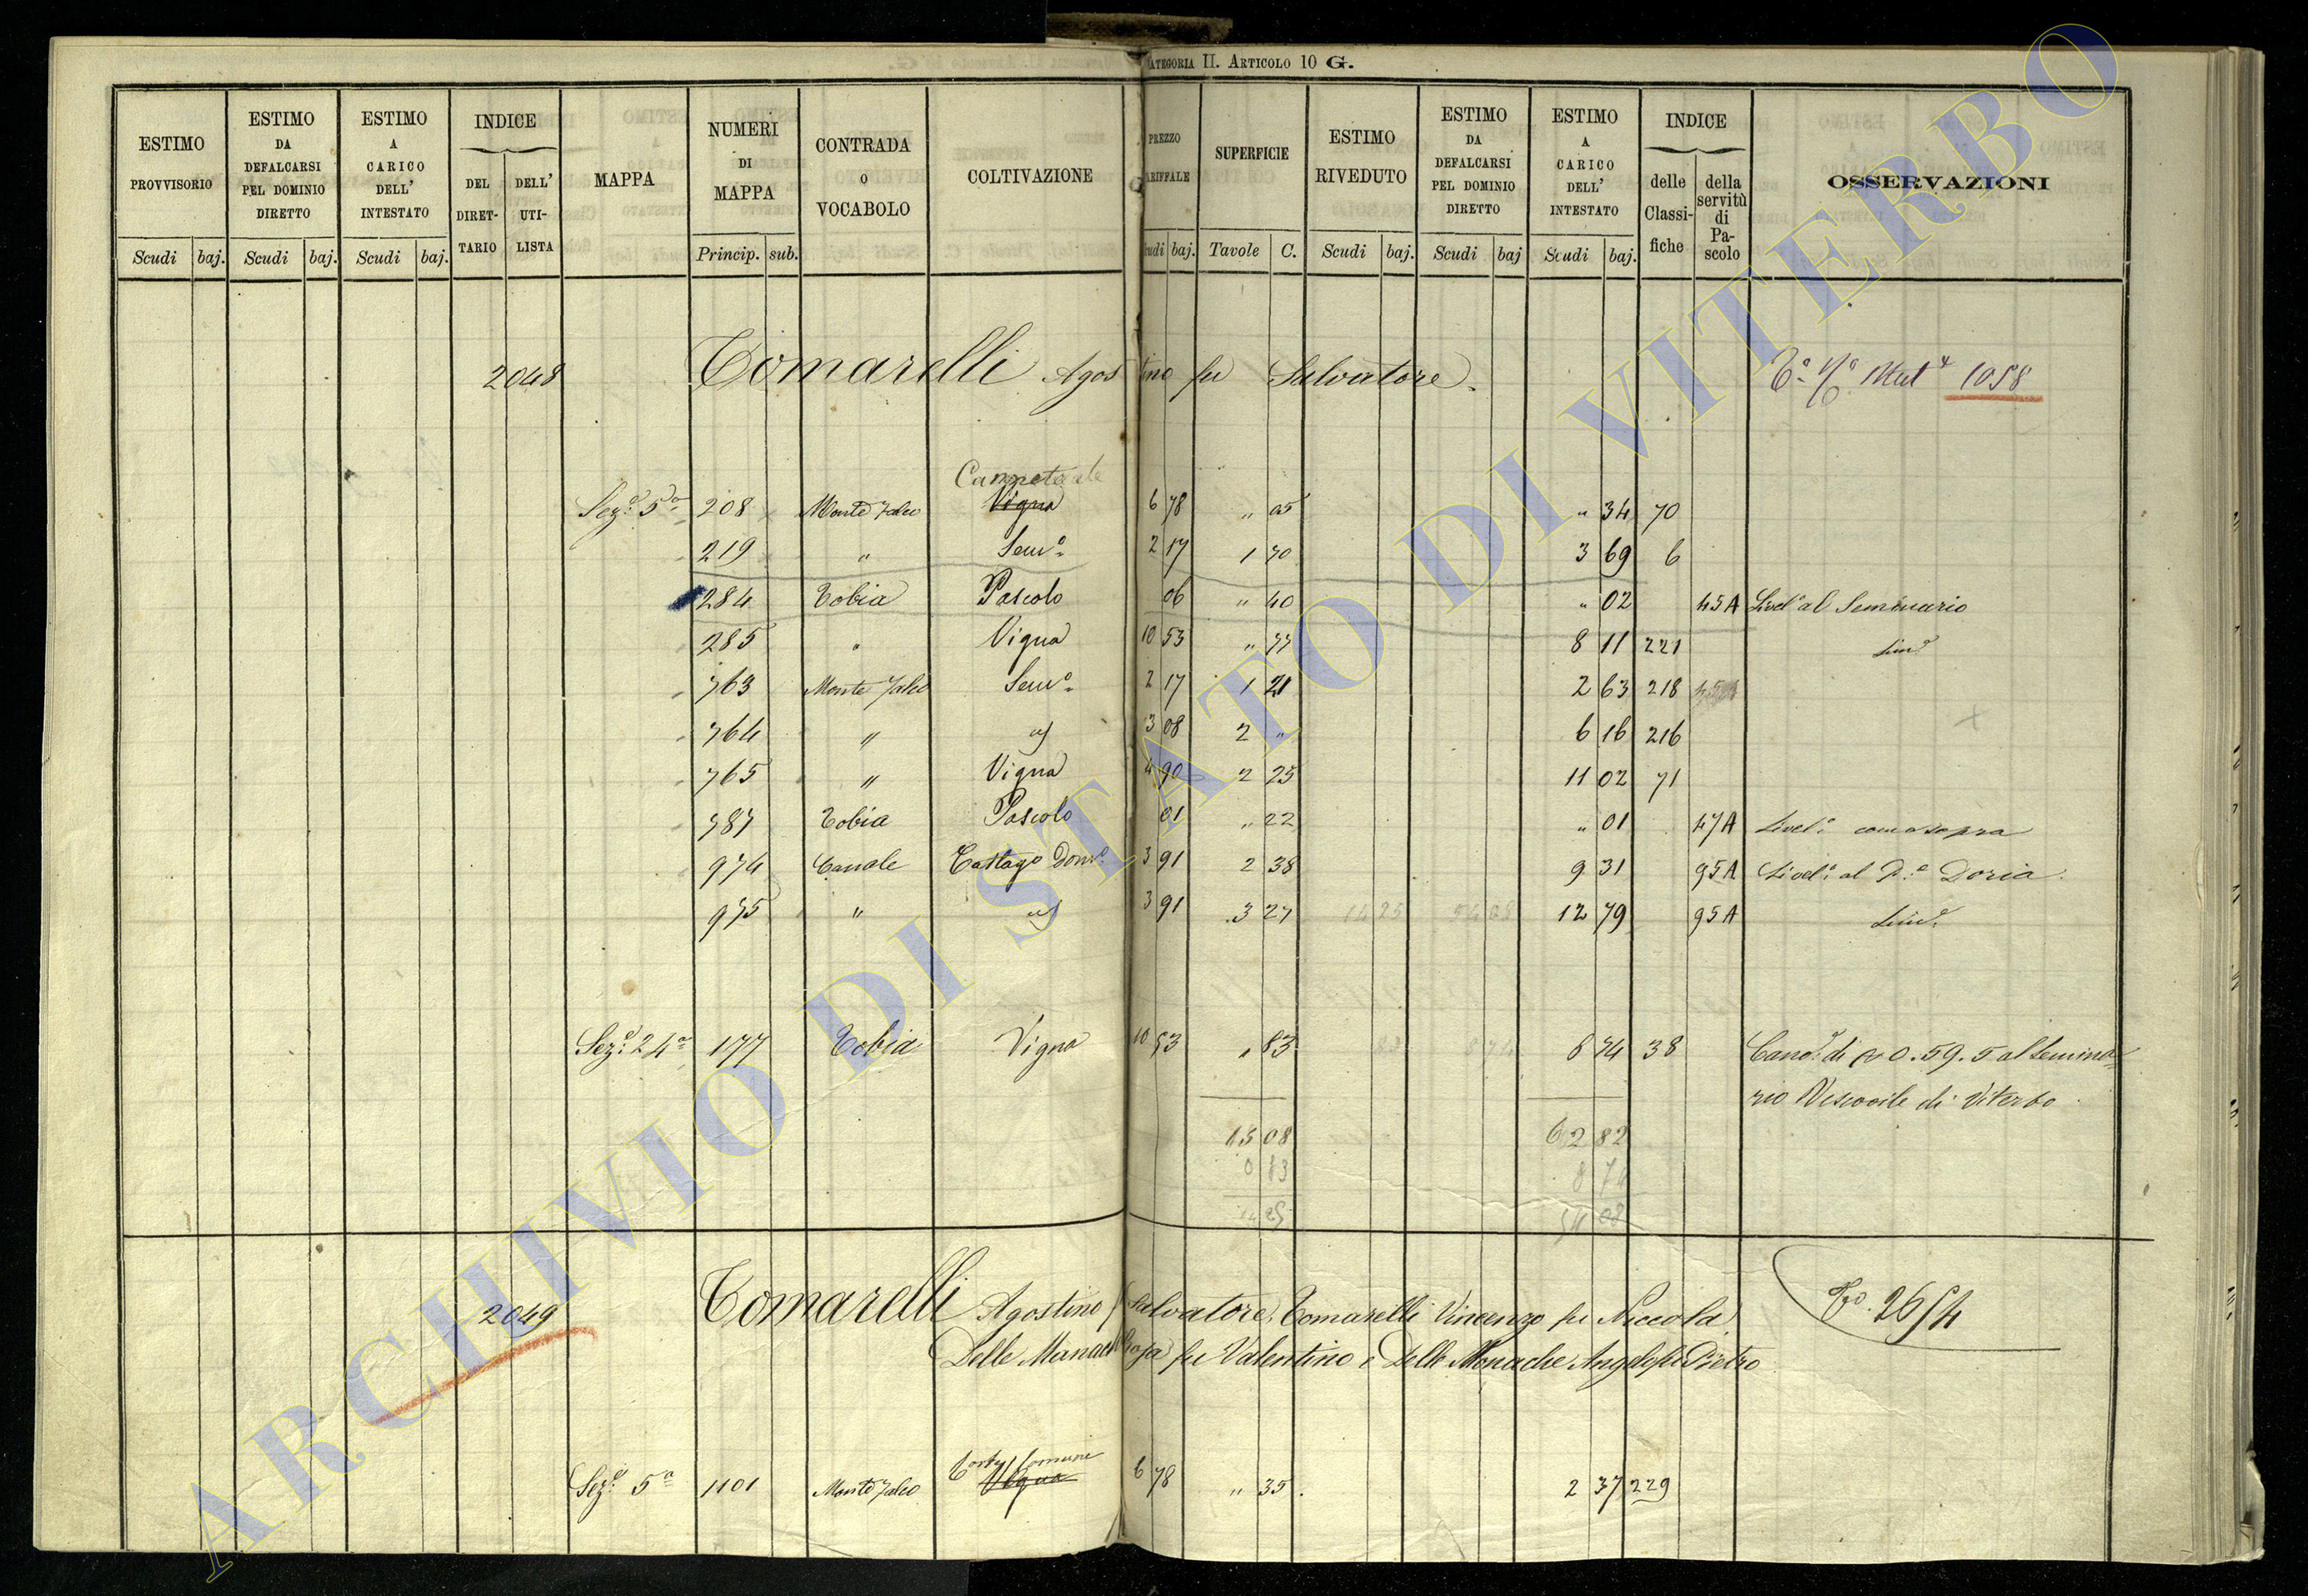 CATEGORIA II. ARTICOLO 10 G.
ESTIMO PROVVISORIO | ESTIMO DA DEFALCARSI PEL DOMINIO DIRETTO | ESTIMO A CARICO DELL' INTESTATO | INDICE | MAPPA | NUMERI DI MAPPA | CONTRADA O VOCABOLO | COLTIVAZIONE | SUPERFICIE | ESTIMO RIVEDUTO | ESTIMO DA DEFALCARSI PEL DOMINIO DIRETTO | ESTIMO A CARICO DELL' INTESTATO | INDICE | OSSERVAZIONI
DEL DIRETTARIO | DELL' UTILISTA | PREZZO | delle Classifiche | della servitù di Pascolo
Scudi | baj. | Scudi | baj. | Scudi | baj. | Princip. | sub. | baj. | Tavole | C. | Scudi | baj. | Scudi | baj | Scudi | baj.
2048 Tomarelli Agostino fu Salvatore. 1058
Sez.e 5a 208 Monte Jalco Vigna 6 78 " 05 " 34 70
219 " Sem.o 2 17 1 70 3 69 6
284 Tobia Pascolo 06 " 40 " 02 45A Livel.o al Seminario
285 " Vigna 10 53 " 77 8 11 221 Sim.e
763 Monte Jalco Sem.o 2 17 1 21 2 63 218
764 " 3 08 2 " 6 16 216
765 " Vigna 4 90 2 25 11 02 71
787 Tobia Pascolo 01 " 22 " 01 47A Livel.o come sopra
974 Canale Castag.o Dom.o 3 91 2 38 9 31 95A Livel.o al P.e Doria.
975 " 3 91 3 27 12 79 95A Sim.e
Sez.e 24a 177 Tobia Vigna 10 53 " 83 8 74 38 Cano.e di 0.59.5 al Semina=
rio Vescovile di Viterbo
62 82
8 74
2049 Tomarelli Agostino fu Salvatore, Tomarelli Vincenzo fu Niccola 2654
Delle Monache Rosa fu Valentino e Delle Monache Angelo fu Pietro
Sez.e 5a 1101 Monte Jalco Corte Comune Vigna 6 78 " 35 2 37 229
ARCHIVIO DI STATO DI VITERBO